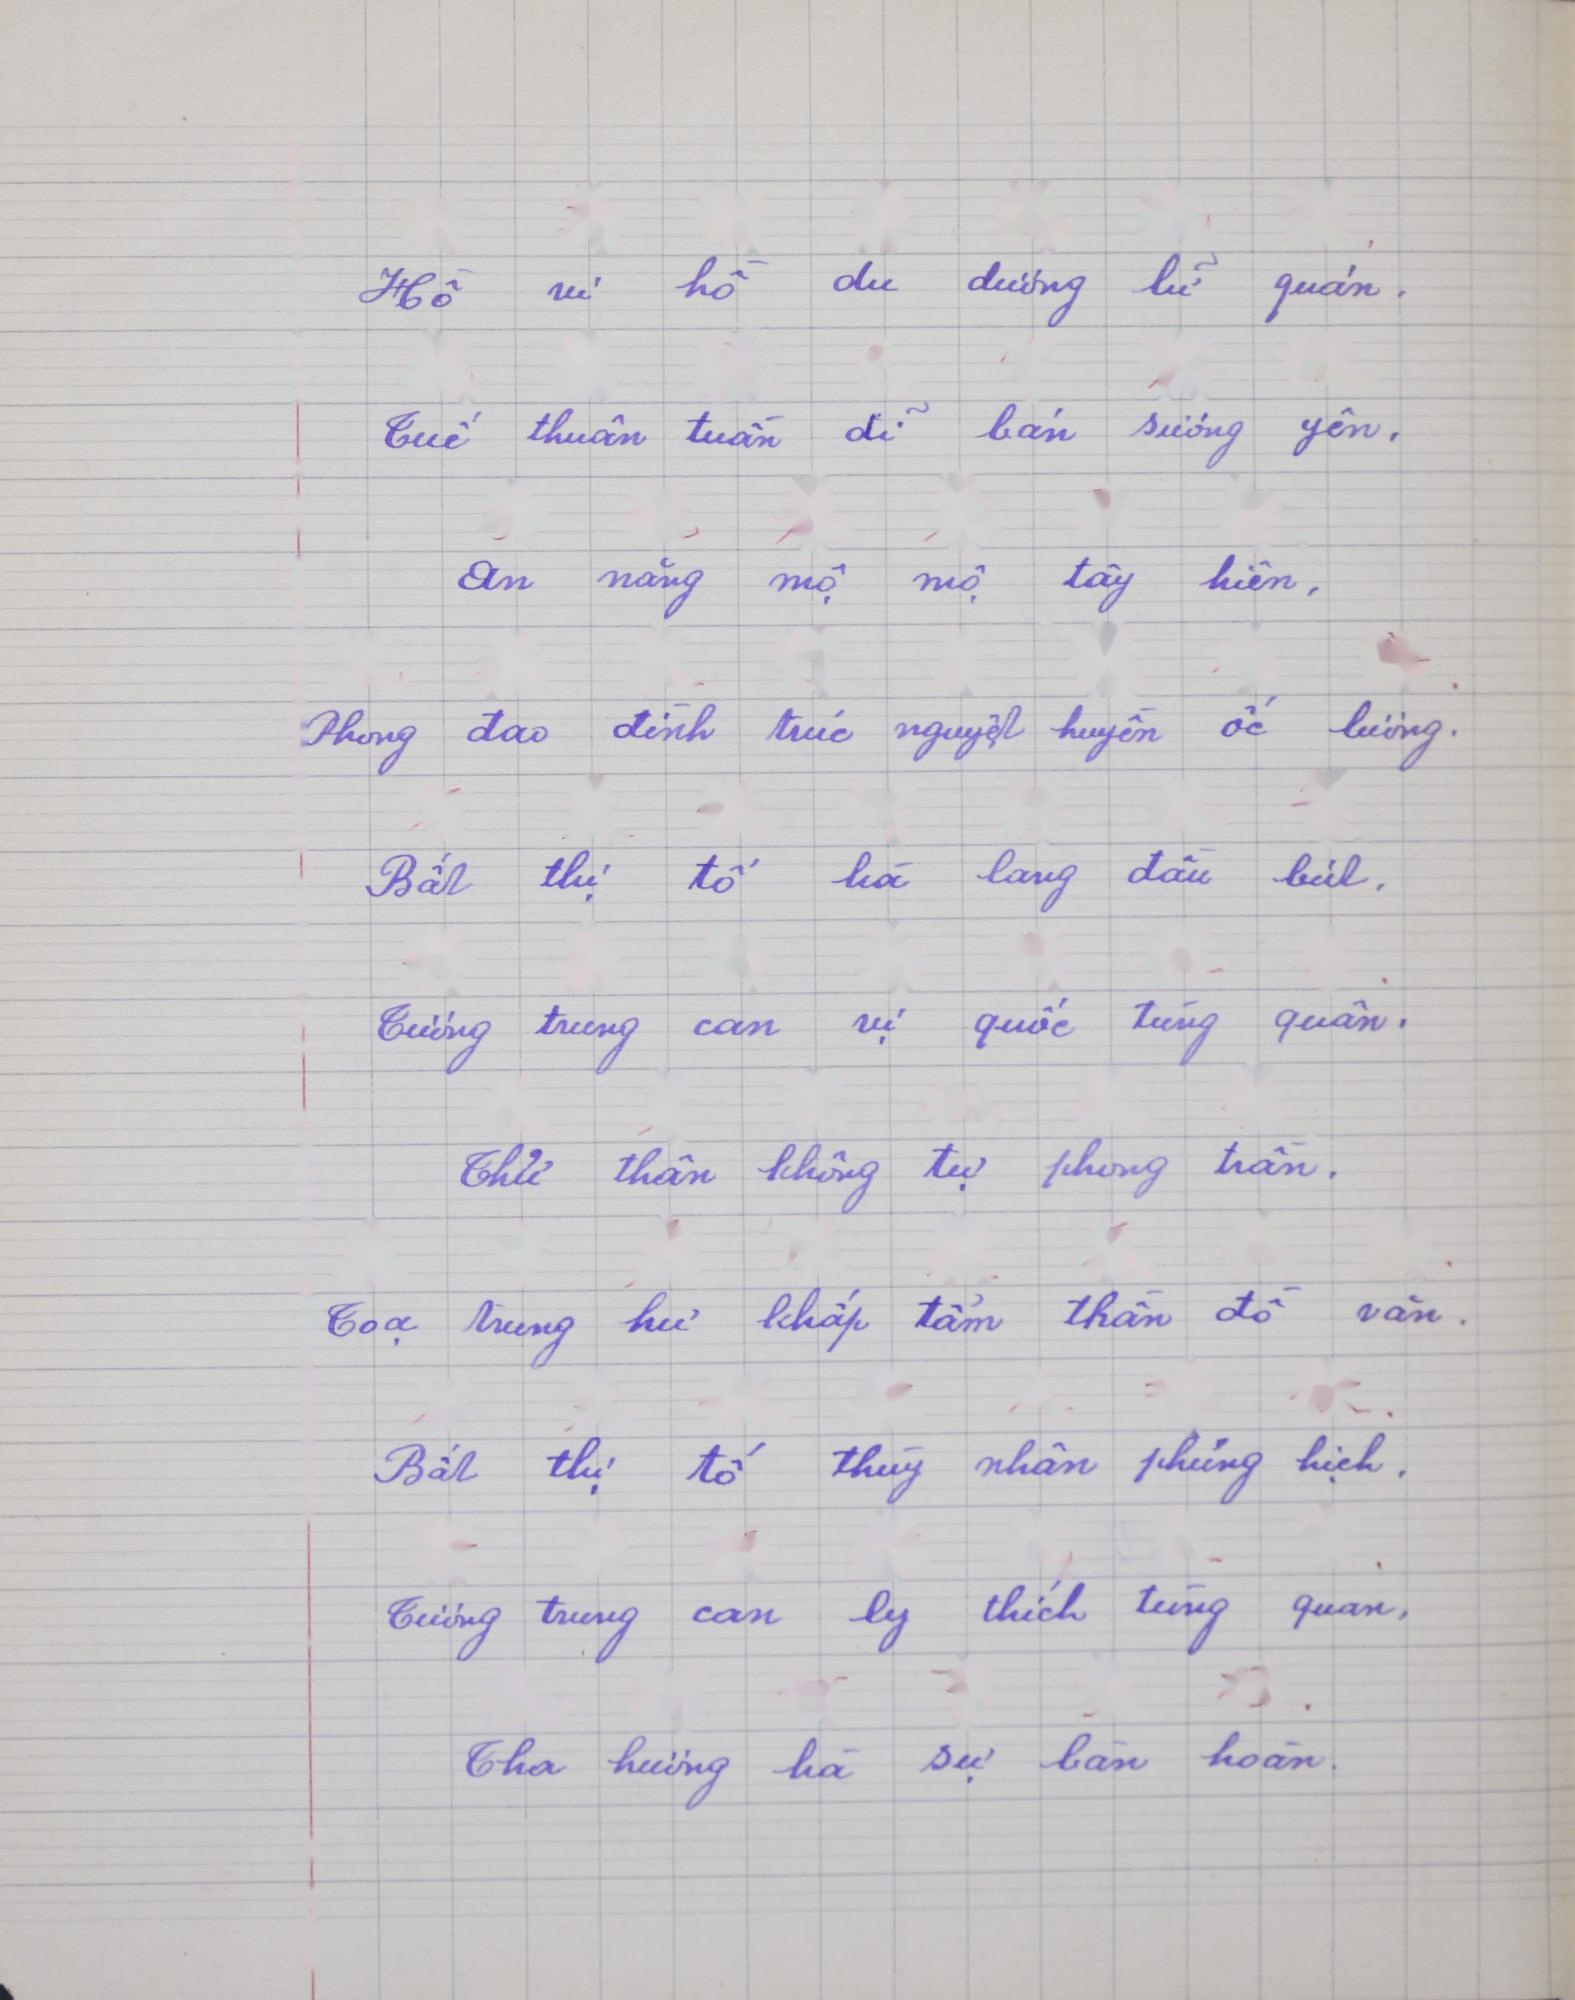 Hồ vi hồ du dương lữ quán.
Tuế thuân tuần dĩ bán sương yên.
An năng mộ mộ tây hiên,
Phong đao đình trúc nguyệt huyền ốc lương.
Bất thị tố hà lang đầu bút,
Tương trung can vị quốc tùng quân.
Thử thân không tự phong trần,
Toạ trung hư kháp tầm thần đồ vân.
Bất thị tố thuỳ nhân phủng hịch,
Tương trung can ly thích tùng quan,
Tha hương hà sự bàn hoàn.